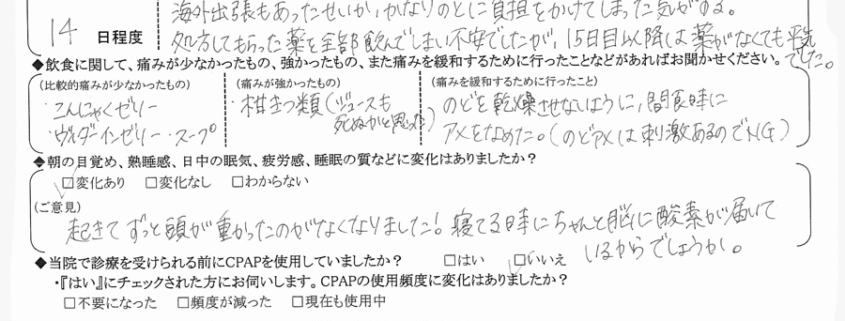 海外出張もあったせいか、かなりのどに負担をかけてしまった気がする。
14 日程度 処方してもらった薬を全部飲んでしまい不安でしたが、15日目以降は薬がなくても平気でした。
◆飲食に関して、痛みが少なかったもの、強かったもの、また痛みを緩和するために行ったことなどがあればお聞かせください。
(比較的痛みが少なかったもの) (痛みが強かったもの) (痛みを緩和するために行ったこと)
・こんにゃくゼリー
・ヴィダーインゼリー・スープ
・柑きつ類(ジュースも
死ぬかと思った)
のどを乾燥させないように、間食時に
アメをなめた。(のどアメは刺激あるのでNG)
◆朝の目覚め、熟睡感、日中の眠気、疲労感、睡眠の質などに変化はありましたか?
☑変化あり □変化なし □わからない
(ご意見)
起きてずっと頭が重かったのがなくなりました!寝てる時にちゃんと脳に酸素が届いて
いるからでしょうか。
◆当院で診療を受けられる前にCPAPを使用していましたか? □はい ☑いいえ
・『はい』にチェックされた方にお伺いします。CPAPの使用頻度に変化はありましたか?
□不要になった □頻度が減った □現在も使用中